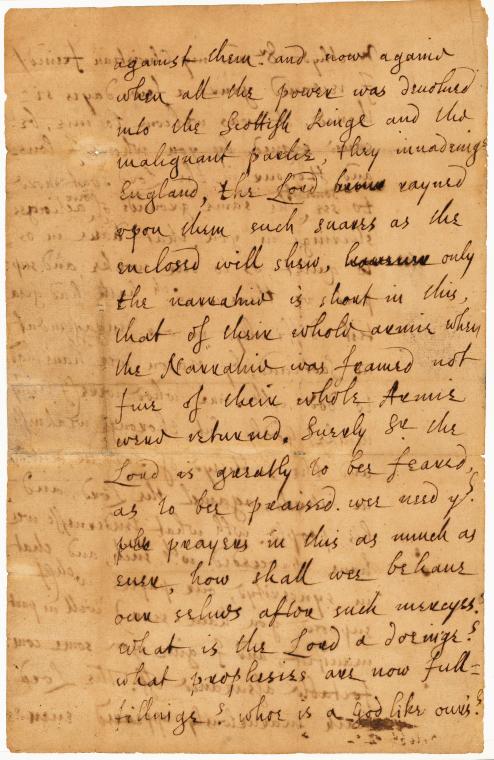 against them. and now againe
when all the power was devolued
into the Scottish Kinge and the
malignant partie, they invadeinge
England, the Lord rayned
vpon them such snares as the
enclosed will shew, only
the narratiue is short in this,
that of their whole armie when
the Narratiue was framed not
fiue of their whole Armie
were returned. Surely Sr. the
Lord is greatly to bee feared,
as to bee praised. wee need yr.
prayers in this as much as
euer, how shall wee behaue
our selues after such mercyes?
what is the Lord a doeinge?
what prophesies are now full=
fillinge? whoe is a God like ours?